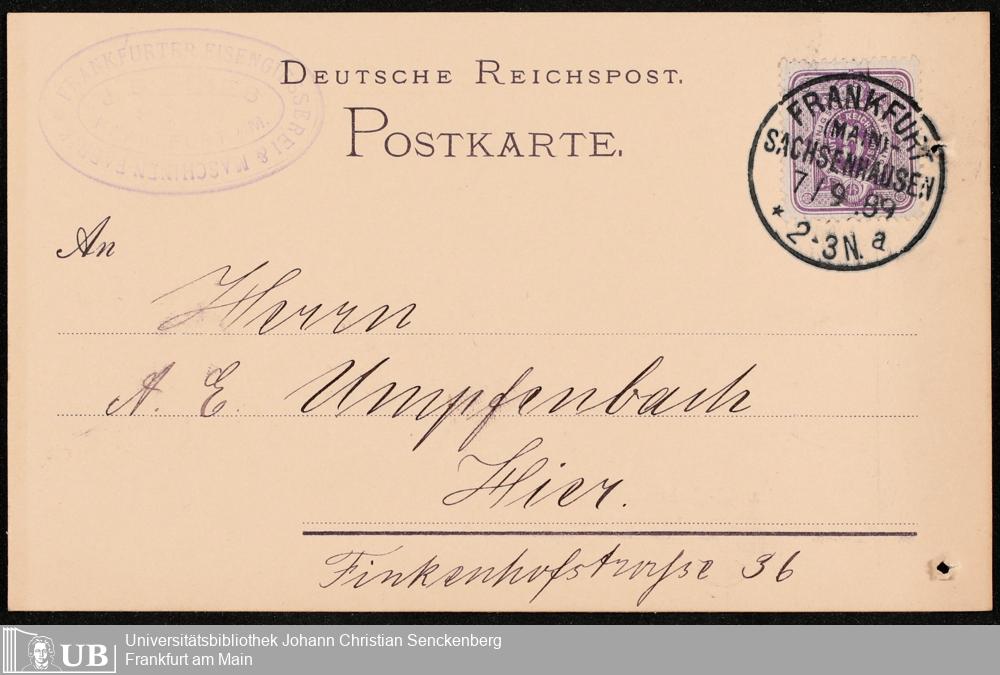 FRANKFURTER EISENGIESSEREI & MASCHINENFABRIK
DEUTSCHE REICHSPOST.
POSTKARTE.
FRANKFURT
(MAIN)-
SACHSENHAUSEN
7/9.89
* 2-3N. a
An
Herrn
A. E. Umpfenbach
Hier.
Finkenhofstraße 36
UB Universitätsbibliothek Johann Christian Senckenberg
Frankfurt am Main